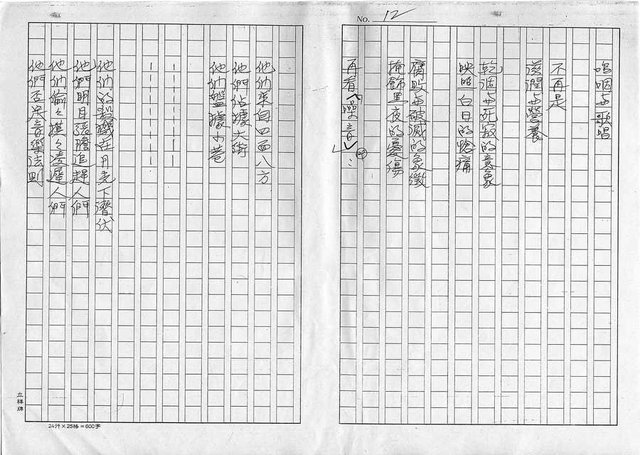 No. 12
嗚咽與歌唱
不再是
滋潤與營養
乾涸與死寂的意象
映照白日的嗆痛
腐敗與破滅的象徵
掩飾黑夜的憂傷
再看〈噪音〉：
他們來自四面八方
他們佔據大街
他們盤據小巷
他們的殺機在月光下潛伏
他們明目張膽追趕人們
他們偷々摸々凌遲人們
他們否定音樂法則
立祥牌
24行×25格=600字